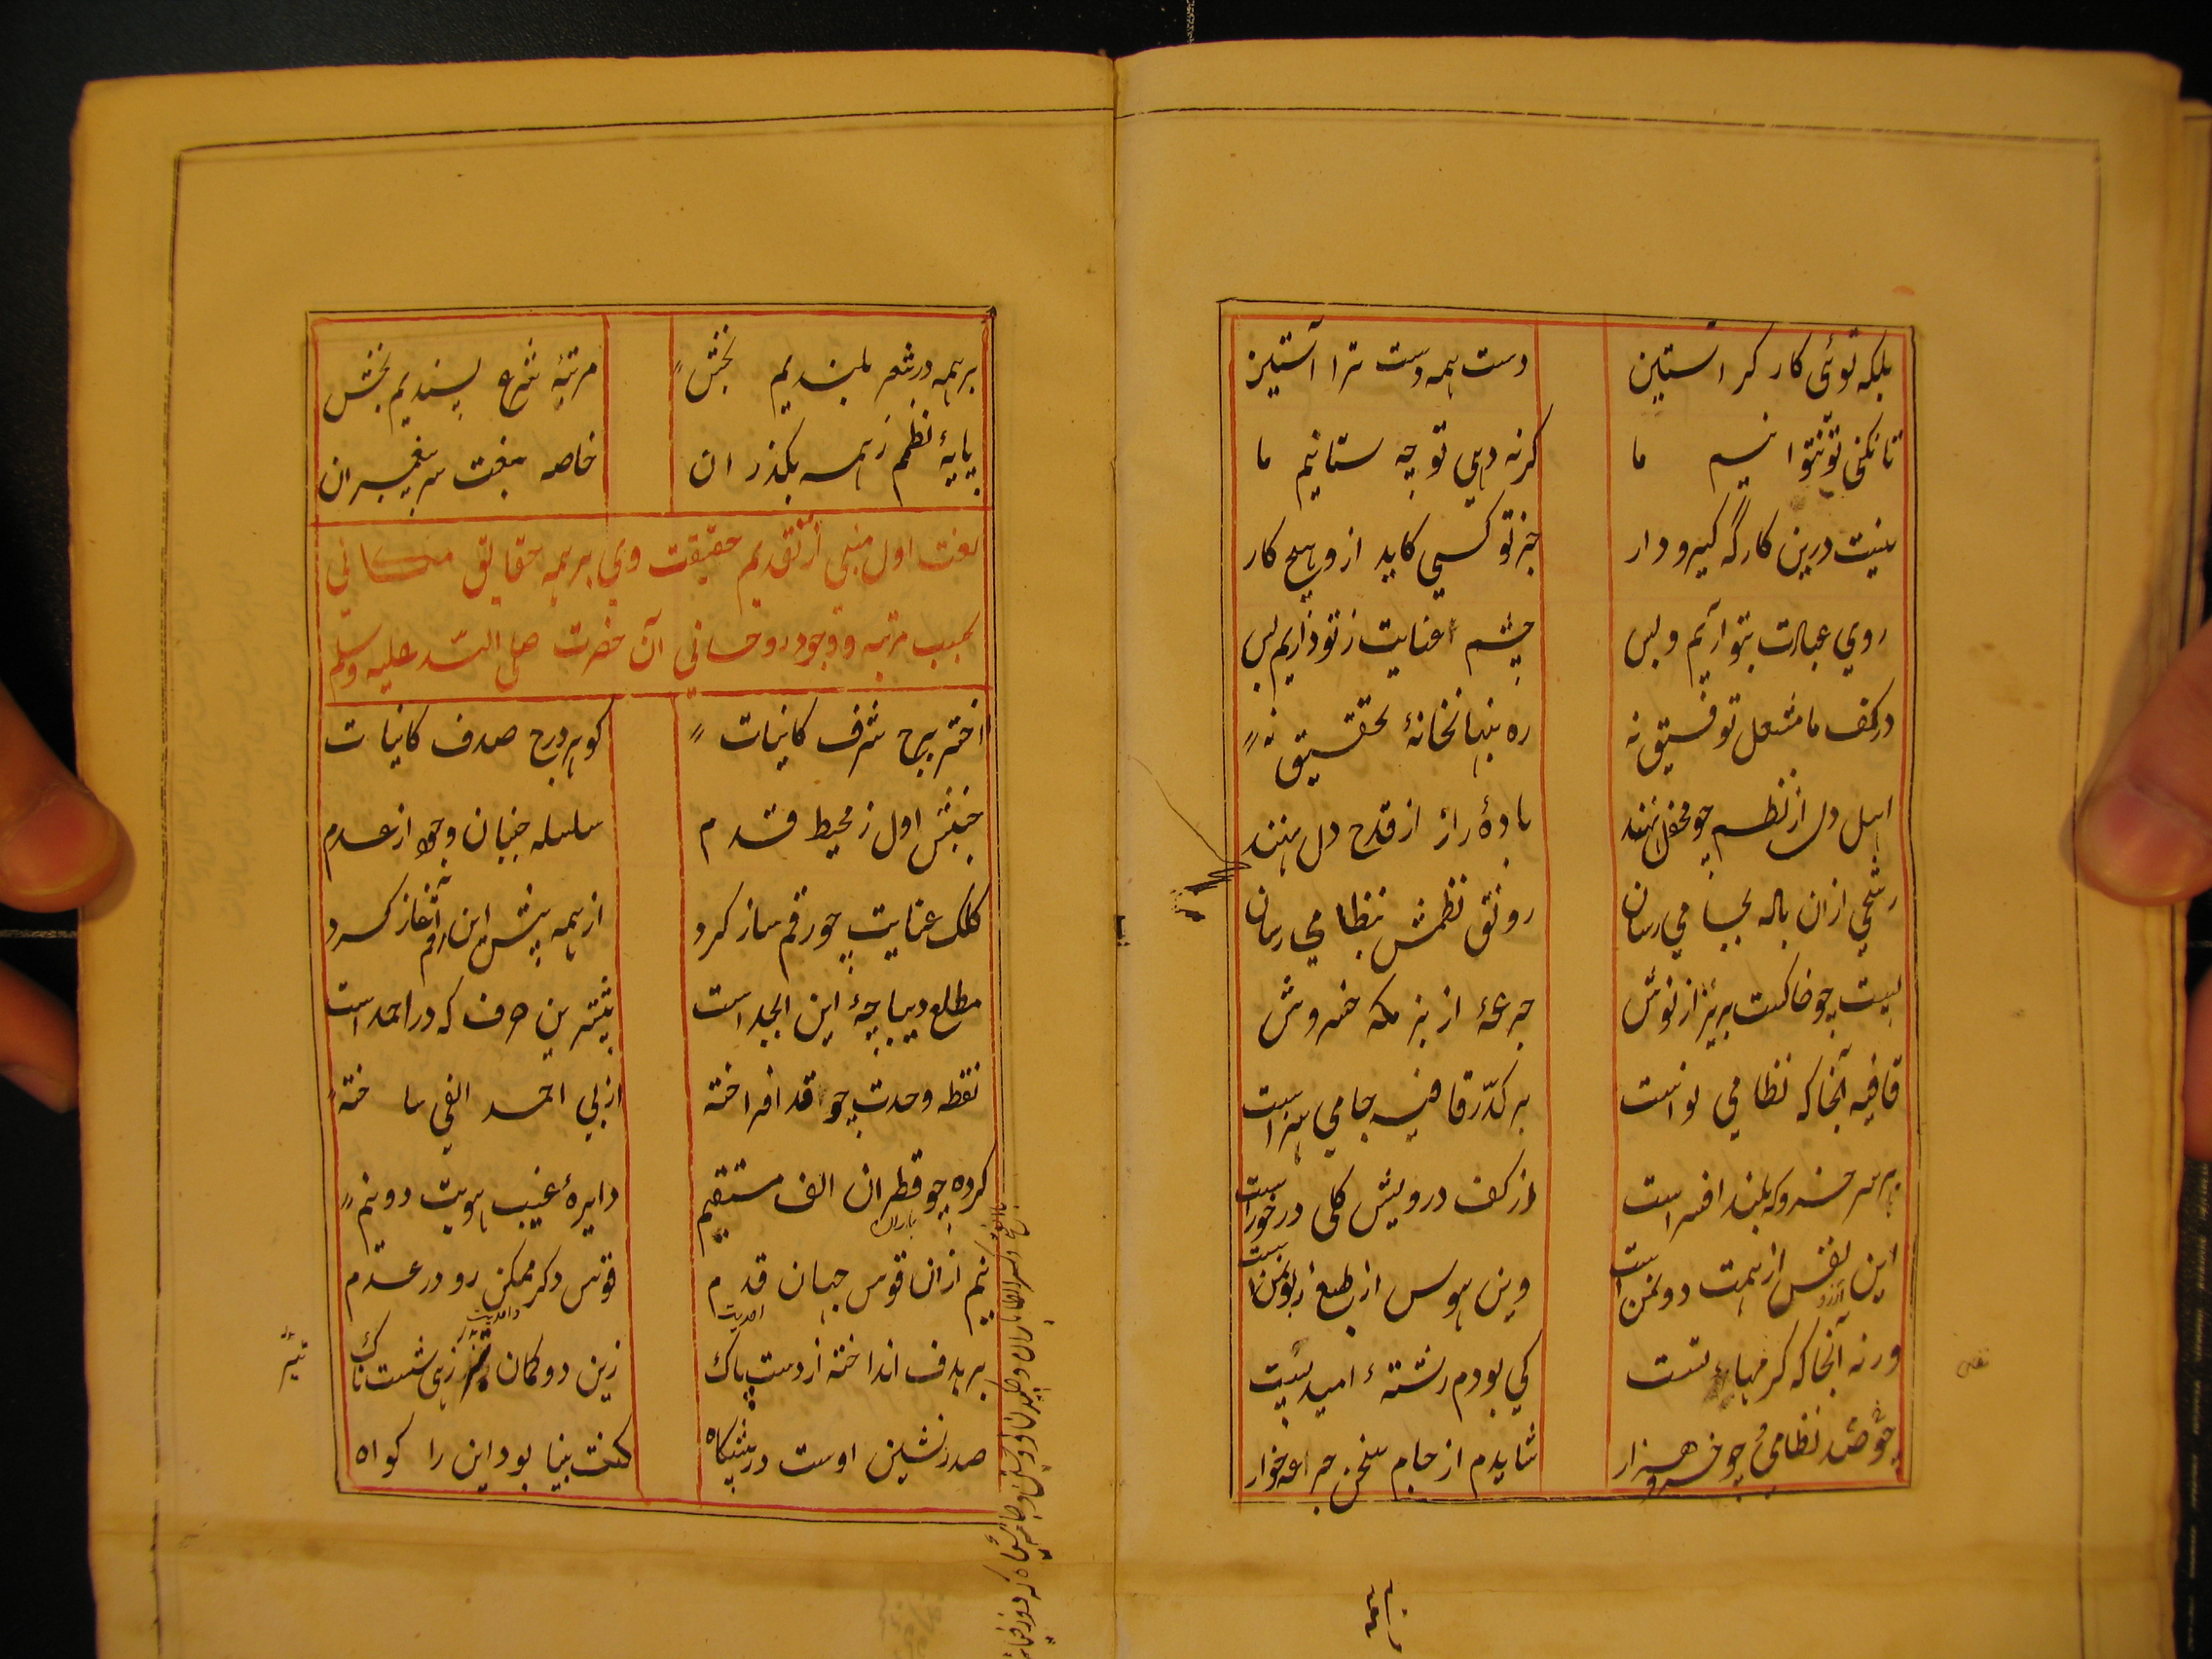 بلکه توئی کار کر آستین دست همه دست ترا آستین
تا نکنی تو نتوانیم ما کر نه دهی تو چه ستانیم ما
نیست درین کارگه گیرو دار جز تو کسی کاید ازو هیچ کار
روی عبادت بتو آریم و بس چشم عنایت ز تو داریم بس
در کف ما مشعل توفیق نه ره بنهانخانهٔ تحقیق نه
اهل دل از نظم چو محفل نهند بادهٔ راز از قدح دل نهند
رشحی ازان باده بجامی رسان رونق نظمش بنظامی رسان
پست چو خاکست بریز از نوش جرعهٔ از بزمگه خسروش
قافیه آنجا که نظامی نواست بر کدر قافیه جامی سزاست
بر سر خسرو که بلند افسر است از کف درویش کلی درخور است
این نفس از همت دون منست وین هوس از طبع زبون منست
ورنه آنجا که کرمهاء تست کی بودم رشتهٔ امید سست
چو صد نظامی و چو خسرو هزار شایدم از جام سخن جرعه خوار
بر همه در شعر بلندیم بخش مرتبهٔ شرع پسندیم بخش
پایهٔ نظمم ز همه بگذران خاصه بنعت سر پیغمبران
نعت اول منبی از تقدیم حقیقت وی بر همه حقایق مکانی
بحسب مرتبه و وجود روحانی آن حضرت صلی الله علیه وسلم
اختر برج شرف کاینات گوهر درج صدف کاینات
جنبش اول ز محیط قدم سلسله جنبان وجود از عدم
کلک عنایت چو رقم ساز کرد از همه پیش این رقم آغاز کرد
مطلع دیباچهٔ این ابجد است پیشترین حرف که در احمد است
نقطه وحدت چو قد افراخته از پی احمد الفی ساخته
کرده چو قطر آن الف مستقیم دایرهٔ غیب هویت دو نیم
نیم ازان قوس جهان قدم قوس دگر ممکن رو در عدم
بر هدف انداخته از دست پاک زین دو کمان زهی شست
صدر نشین اوست در پیشگاه کنت نبیا بود این را گواه